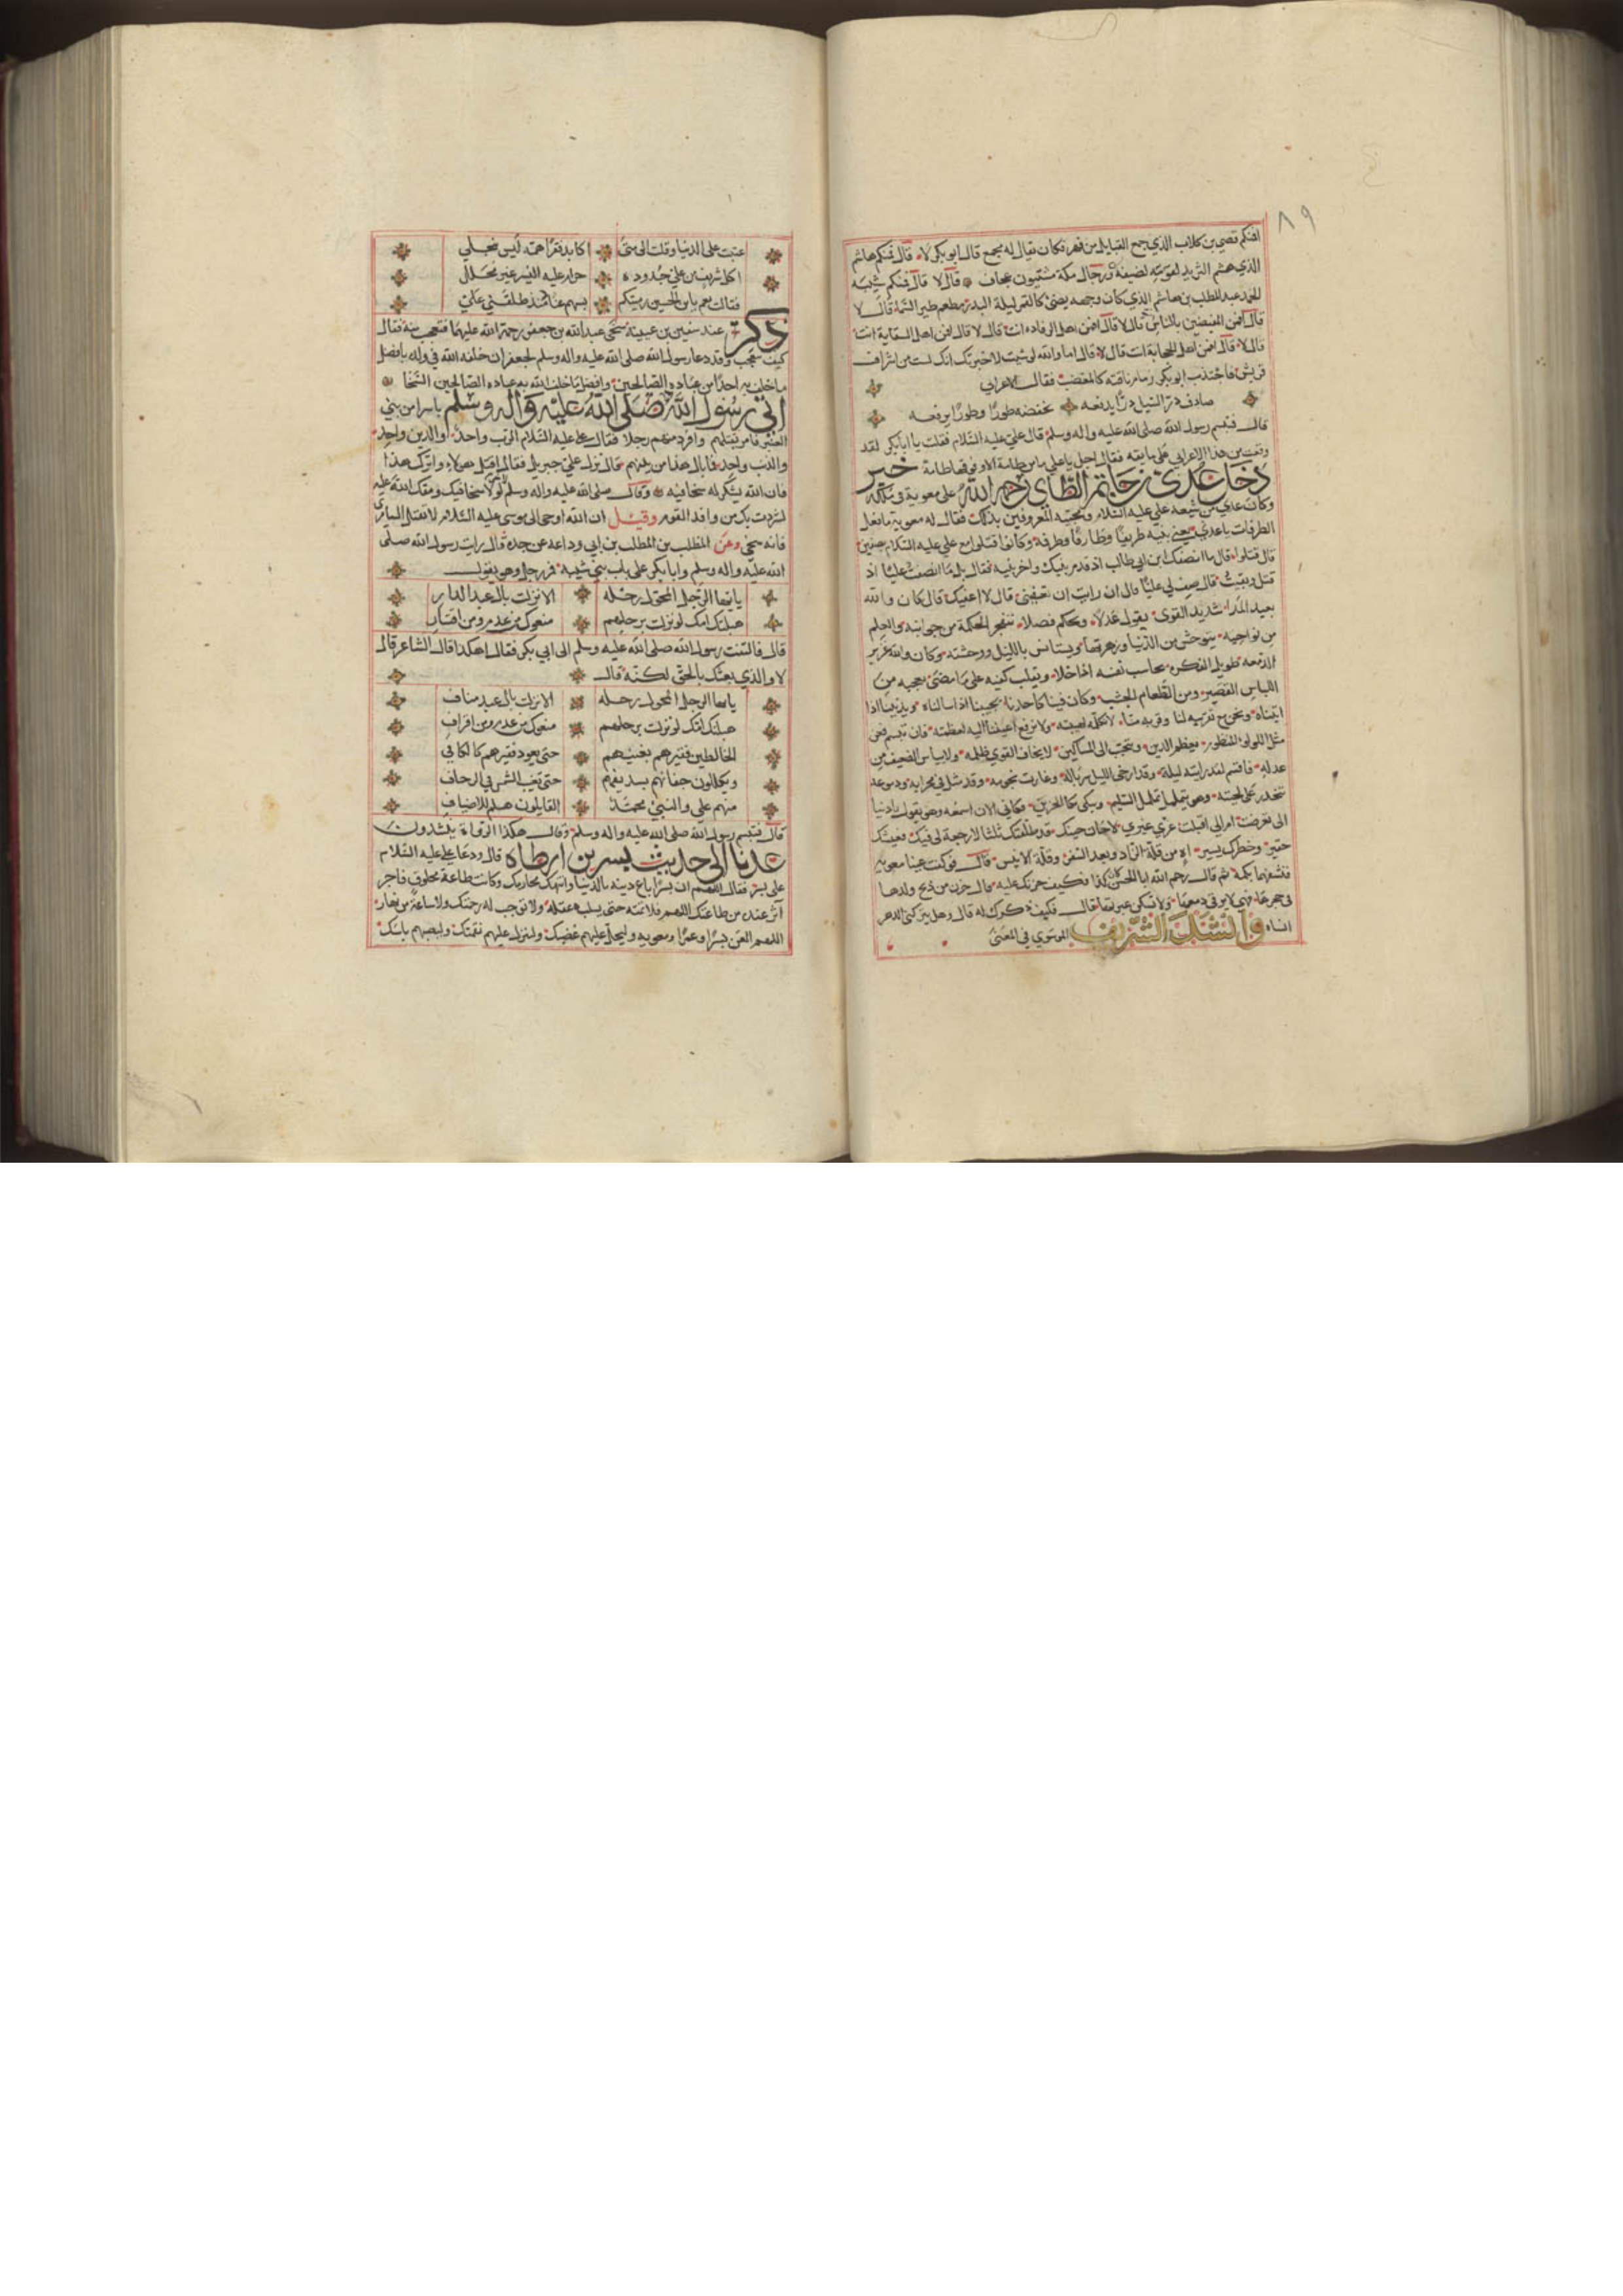 ٨٩
افمنكم قصي بن كلاب الذي جمع القبايل من فهر فكان يقال له مجمع قال ابو بكر لا قال فمنكم هاشم
الذي هشم الثريد لقومه لضيفه ورجال مكة مسنتون عجاف قال لا قال فمنكم شيبة
الحمد عبد المطلب بن هاشم الذي كان وجهه يضئ كالقمر ليلة البدر مطعم طير السماء قال لا
قال افمن المفيضين بالناس قال لا قال افمن اهل الرفادة انت قال لا قال افمن اهل السقاية انت
قال لا قال افمن اهل الحجابة انت قال لا قال اما والله لو شيت لاخبرتك انك لست من اشراف
قريش فاجتذب ابو بكر زمام ناقته كالمغضب فقال الاعرابي
صادف در السيل درا يدفعه يخفضه طورا وطورا يرفعه
قال فتبسم رسول الله صلى الله عليه واله وسلم قال علي عليه السلام فقلت يا ابا بكر لقد
وقعت من هذا الاعرابي على باقعه فقال اجل يا علي ما من طامة الا وفوقها طامة خبر
دخل عدي بن حاتم الطاي رحمه الله على معوية في
وكان عدي من شيعه علي عليه السلام ومحبيه المعروفين بذلك فقال له معوية ما فعل
الطرفات يا عدي يعني بنيه طريفا وطارفا وطرفة وكانوا قتلوا مع علي عليه السلام بصفين
قال قتلوا قال ما انصفك ابن ابي طالب اذ قدم بنيك واخر بنيه فقال بل ما انصفت عليا اذ
قتل وبقيت قال صف لي عليا قال ان رايت ان تعفيني قال لا اعفيك قال كان والله
بعيد المدا شديد القوى يقول عدلا ويحكم فصلا تنفجر الحكمة من جوانبه والعلم
من نواحيه يتوحش من الدنيا وزهرتها ويستانس بالليل ووحشته وكان والله غزير
الدمعه طويل الفكره يحاسب نفسه اذا خلا ويقلب كفيه على ما مضى يعجبه من
اللباس القصير ومن الطعام الجشب وكان فينا كاحدنا يجيبنا اذا سالناه ويدنينا اذا
اتيناه ونحن مع تقريبه لنا وقربه منا لا نكلمه لهيبته ولا نرفع اعيننا اليه لعظمته فان تبسم فعن
مثل اللولو المنظوم يعظم الدين ويتحبب الى المساكين لا يخاف القوي ظلمه ولا ييأس الضعيف من
عدله فاقسم لقد رايته ليلة وقد ارخى الليل سرباله وغارت نجومه وقد مثل في محرابه ودموعه
تتحدر على لحيته وهو يتململ تململ السليم ويبكي بكا الحزين فكاني الان اسمعه وهو يقول يا دنيا
الي تعرضت ام الي اقبلت غري غيري لا حان حينك قد طلقتك ثلثا لا رجعة لي فيك فعيشك
حقير وخطرك يسير اه من قلة الزاد وبعد السفر وقلة الانيس قال فوكفت عينا معوية
فنشفهما بكمه ثم قال رحم الله ابا الحسن كان كذا فكيف حزنك عليه قال حزن من ذبح ولدها
في حجرها فهي لا يرقى دمعها ولا تسكن عبرتها قال فكيف ذكرك له قال وهل يتركني الدهر
انساه وانشدنا الشريف الموسوي في المعنى
عتبت على الدنيا وقلت الى متى اكابد فقرا همه ليس ينجلي
اكل شريف من علي جدوده حرام عليه اليسر غير محلل
فقالت نعم يا ابن الحسين رميتكم بسهم عنادا منذ طلقني علي
ذكر عند سفين بن عيينة سخى عبد الله بن جعفر رحمة الله عليهما فتعجب منه فقال
كيف تتعجب وقد دعا رسول الله صلى الله عليه واله وسلم لجعفر ان خلفه الله في ولده بافضل
ما خلف به احدا من عباده الصالحين وافضل ما خلف الله به عباده الصالحين السخا
اتي رسول الله صلى الله عليه واله وسلم باسرا من بني
العنبر فامر بقتلهم وافرد منهم رجلا فقال علي عليه السلام الرب واحد والدين واحد
والذنب واحد فما بال هذا من بينهم قال نزل علي جبريل فقال اقتل هولاء واترك هذا
فان الله يشكر له سخا فيه وقال صلى الله عليه واله وسلم لولا سخا فيك ومقك الله عليه
لشردت بك من وافد القوم وقيل ان الله اوحى الى موسى عليه السلام لا تقتل السامري
فانه سخي وعن المطلب بن المطلب بن ابي وداعه عن جده قال رايت رسول الله صلى
الله عليه واله وسلم وابا بكر على باب بني شيبه فمر رجل وهو يقول
يا ايها الرجل المحول رحله الا نزلت بال عبد الدار
هبلتك امك لو نزلت برحلهم منعوك من عدم ومن اقتار
قال فالتفت رسول الله صلى الله عليه وسلم الى ابي بكر فقال اهكذا قال الشاعر قال
لا والذي بعثك بالحق لكنه قال
يا ايها الرجل المحول رحله الا نزلت بال عبد مناف
هبلتك امك لو نزلت برحلهم منعوك من عدم ومن اقراف
الخالطين فقيرهم بغنيهم حتى يعود فقيرهم كالكافي
ويكللون جفانهم بسديفهم حتى تغيب الشمس في الرجاف
منهم علي والنبي محمد القايلون هلم للاضياف
قال فتبسم رسول الله صلى الله عليه واله وسلم وقال هكذا الرواة ينشدون
عدنا الى حديث بسر بن ارطاه قال ودعا علي عليه السلام
على بسر فقال اللهم ان بسرا باع دينه بالدنيا وانتهك محارمك وكانت طاعة مخلوق فاجر
آثر عنده من طاعتك اللهم فلا تمته حتى يسلب عقله ولا توجب له رحمتك ولا ساعة من نهار
اللهم العن بسرا وعمرا ومعويه وليحل عليهم غضبك ولتنزل عليهم نقمتك وليصبهم باسك